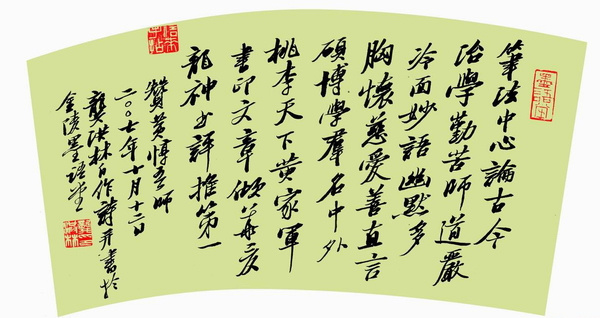 筆法中心論古今
治學勤苦師道嚴
冷面妙語幽默多
胸懷慈愛善直言
碩博學羣名中外
桃李天下黄家軍
書印文章傾華夏
龍神书評推第一
贊黄惇吾師
二〇〇七年十月十二日
龔洪林自作詩并書於
金陵墨語堂